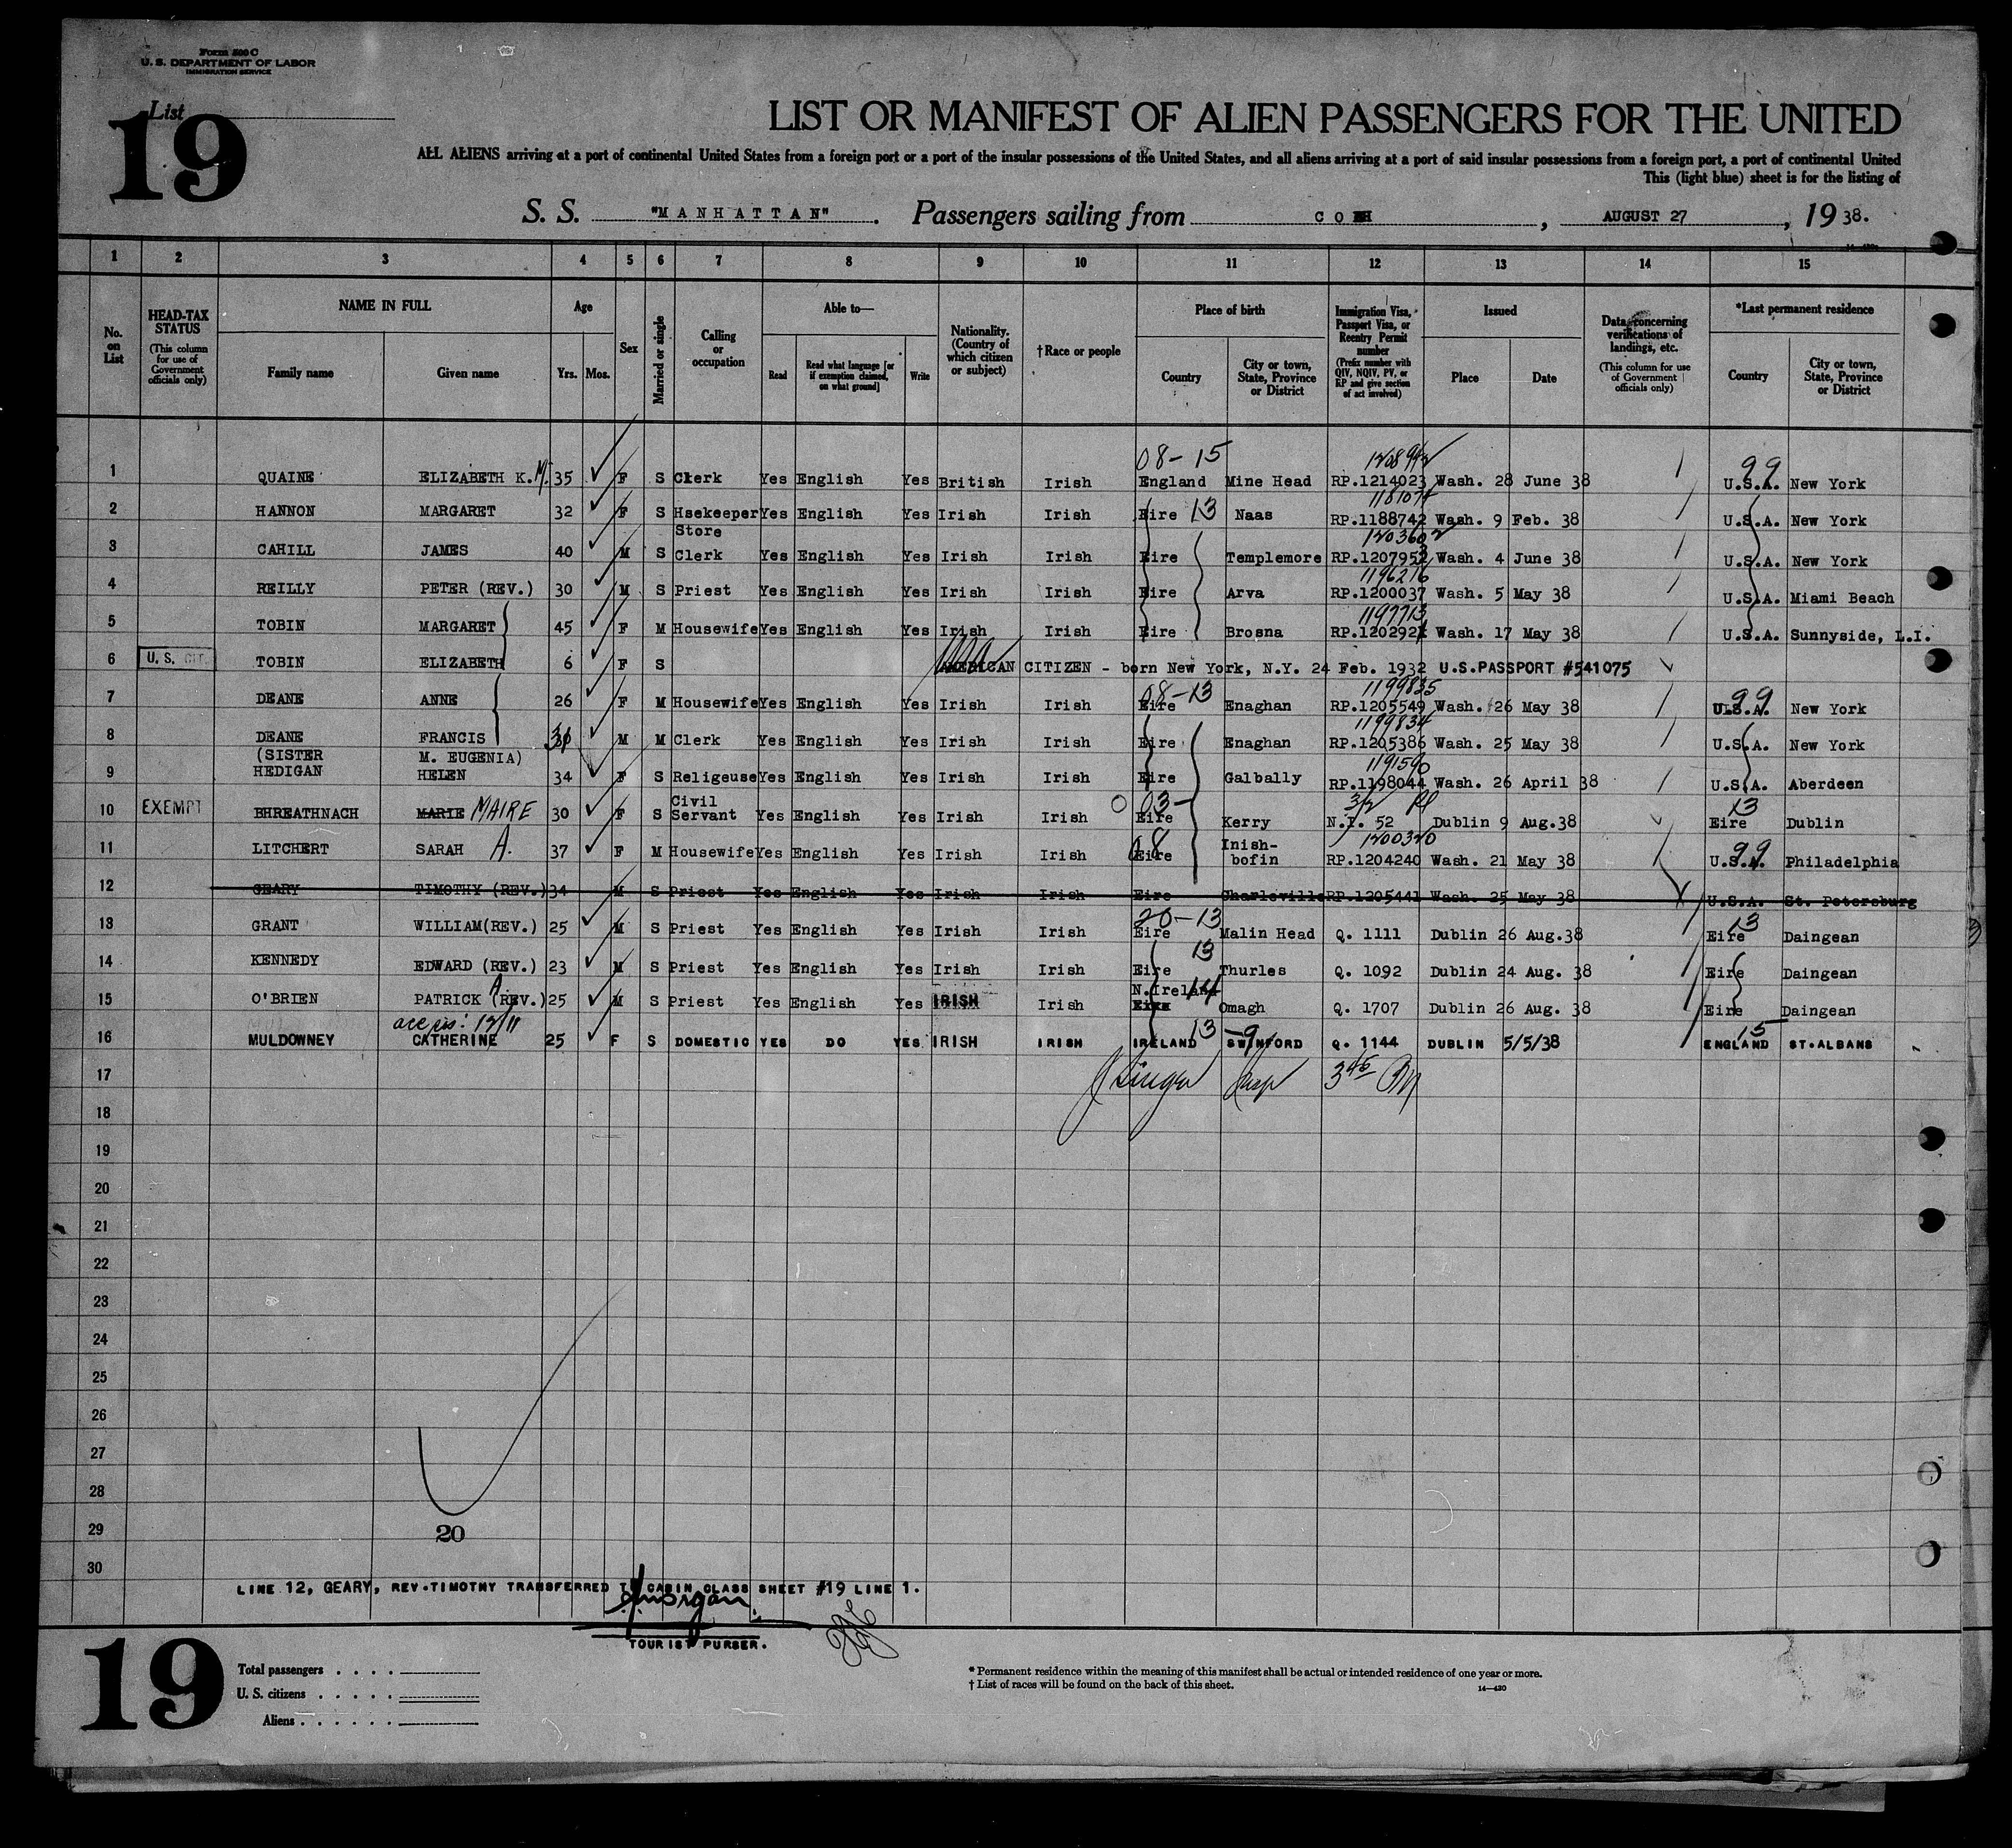 Form 500 C
U. S. DEPARTMENT OF LABOR
IMMIGRATION SERVICE
List
19
LIST OR MANIFEST OF ALIEN PASSENGERS FOR THE UNITED
ALL ALIENS arriving at a port of continental United States from a foreign port or a port of the insular possessions of the United States, and all aliens arriving at a port of said insular possessions from a foreign port, a port of continental United
This (light blue) sheet is for the listing of
S. S. "MANHATTAN". Passengers sailing from COBH, AUGUST 27, 1938.
1 2 3 4 5 6 7 8 9 10 11 12 13 14 15
No. on List
HEAD-TAX STATUS (This column for use of Government officials only)
NAME IN FULL Family name Given name
Age Yrs. Mos.
Sex
Married or single
Calling or occupation
Able to— Read Read what language [or if exemption claimed, on what ground] Write
Nationality. (Country of which citizen or subject)
†Race or people
Place of birth Country City or town, State, Province or District
Immigration Visa, Passport Visa, or Reentry Permit number (Prefix number with QIV, NQIV, PV, or RP and give section of act involved)
Issued Place Date
Data concerning verifications of landings, etc. (This column for use of Government officials only)
*Last permanent residence Country City or town, State, Province or District
08-15 99
1 QUAINE ELIZABETH K. M. 35 F S Clerk Yes English Yes British Irish England Mine Head RP.1214023 Wash. 28 June 38 U.S.A. New York
1181074
2 HANNON MARGARET 32 F S Hsekeeper Yes English Yes Irish Irish Eire 13 Naas RP.1188742 Wash. 9 Feb. 38 U.S.A. New York
Store 1203602
3 CAHILL JAMES 40 M S Clerk Yes English Yes Irish Irish Eire Templemore RP.1207952 Wash. 4 June 38 U.S.A. New York
1196216
4 REILLY PETER (REV.) 30 M S Priest Yes English Yes Irish Irish Eire Arva RP.1200037 Wash. 5 May 38 U.S.A. Miami Beach
1197713
5 TOBIN MARGARET 45 F M Housewife Yes English Yes Irish Irish Eire Brosna Wash. 17 May 38 U.S.A. Sunnyside, L.I.
6 U. S. CIT. TOBIN ELIZABETH 6 F S AMERICAN CITIZEN - born New York, N.Y. 24 Feb. 1932 U.S.PASSPORT #541075
08-13 1199835 99
7 DEANE ANNE 26 F M Housewife Yes English Yes Irish Irish Eire Enaghan RP.1205549 Wash. 26 May 38 U.S.A. New York
1199834
8 DEANE FRANCIS M M Clerk Yes English Yes Irish Irish Eire Enaghan RP.1205386 Wash. 25 May 38 U.S.A. New York
(SISTER M. EUGENIA) 1191590
9 HEDIGAN HELEN 34 F S Religeuse Yes English Yes Irish Irish Eire Galbally RP.1198044 Wash. 26 April 38 U.S.A. Aberdeen
Civil 03- 3/2 13
10 EXEMPT BHREATHNACH MARIE MAIRE 30 F S Servant Yes English Yes Irish Irish Eire Kerry N.I. 52 Dublin 9 Aug.38 Eire Dublin
08 Inish- 1200320 99
11 LITCHERT SARAH A. 37 F M Housewife Yes English Yes Irish Irish Eire bofin RP.1204240 Wash. 21 May 38 U.S.A. Philadelphia
12 GEARY TIMOTHY (REV.) 34 M S Priest Yes English Yes Irish Irish Eire Charleville RP.1205441 Wash. 25 May 38 U.S.A. St. Petersburg
20-13 13
13 GRANT WILLIAM(REV.) 25 M S Priest Yes English Yes Irish Irish Eire Malin Head Q. 1111 Dublin 26 Aug.38 Eire Daingean
13
14 KENNEDY EDWARD (REV.) 23 M S Priest Yes English Yes Irish Irish Eire Thurles Q. 1092 Dublin 24 Aug. 38 Eire Daingean
A. N.Ireland 14
15 O'BRIEN PATRICK (REV.) 25 M S Priest Yes English Yes IRISH Irish Eire Omagh Q. 1707 Dublin 26 Aug. 38 Eire Daingean
13 -9 15
16 MULDOWNEY CATHERINE 25 F S DOMESTIC YES DO YES IRISH IRISH IRELAND SWINFORD Q. 1144 DUBLIN 5/5/38 ENGLAND ST.ALBANS
17
18
19
20
21
22
23
24
25
26
27
28
29
20
30
LINE 12, GEARY, REV.TIMOTHY TRANSFERRED TO CABIN CLASS SHEET #19 LINE 1.
TOURIST PURSER.
19
Total passengers
U. S. citizens
Aliens
* Permanent residence within the meaning of this manifest shall be actual or intended residence of one year or more.
† List of races will be found on the back of this sheet.
14—430